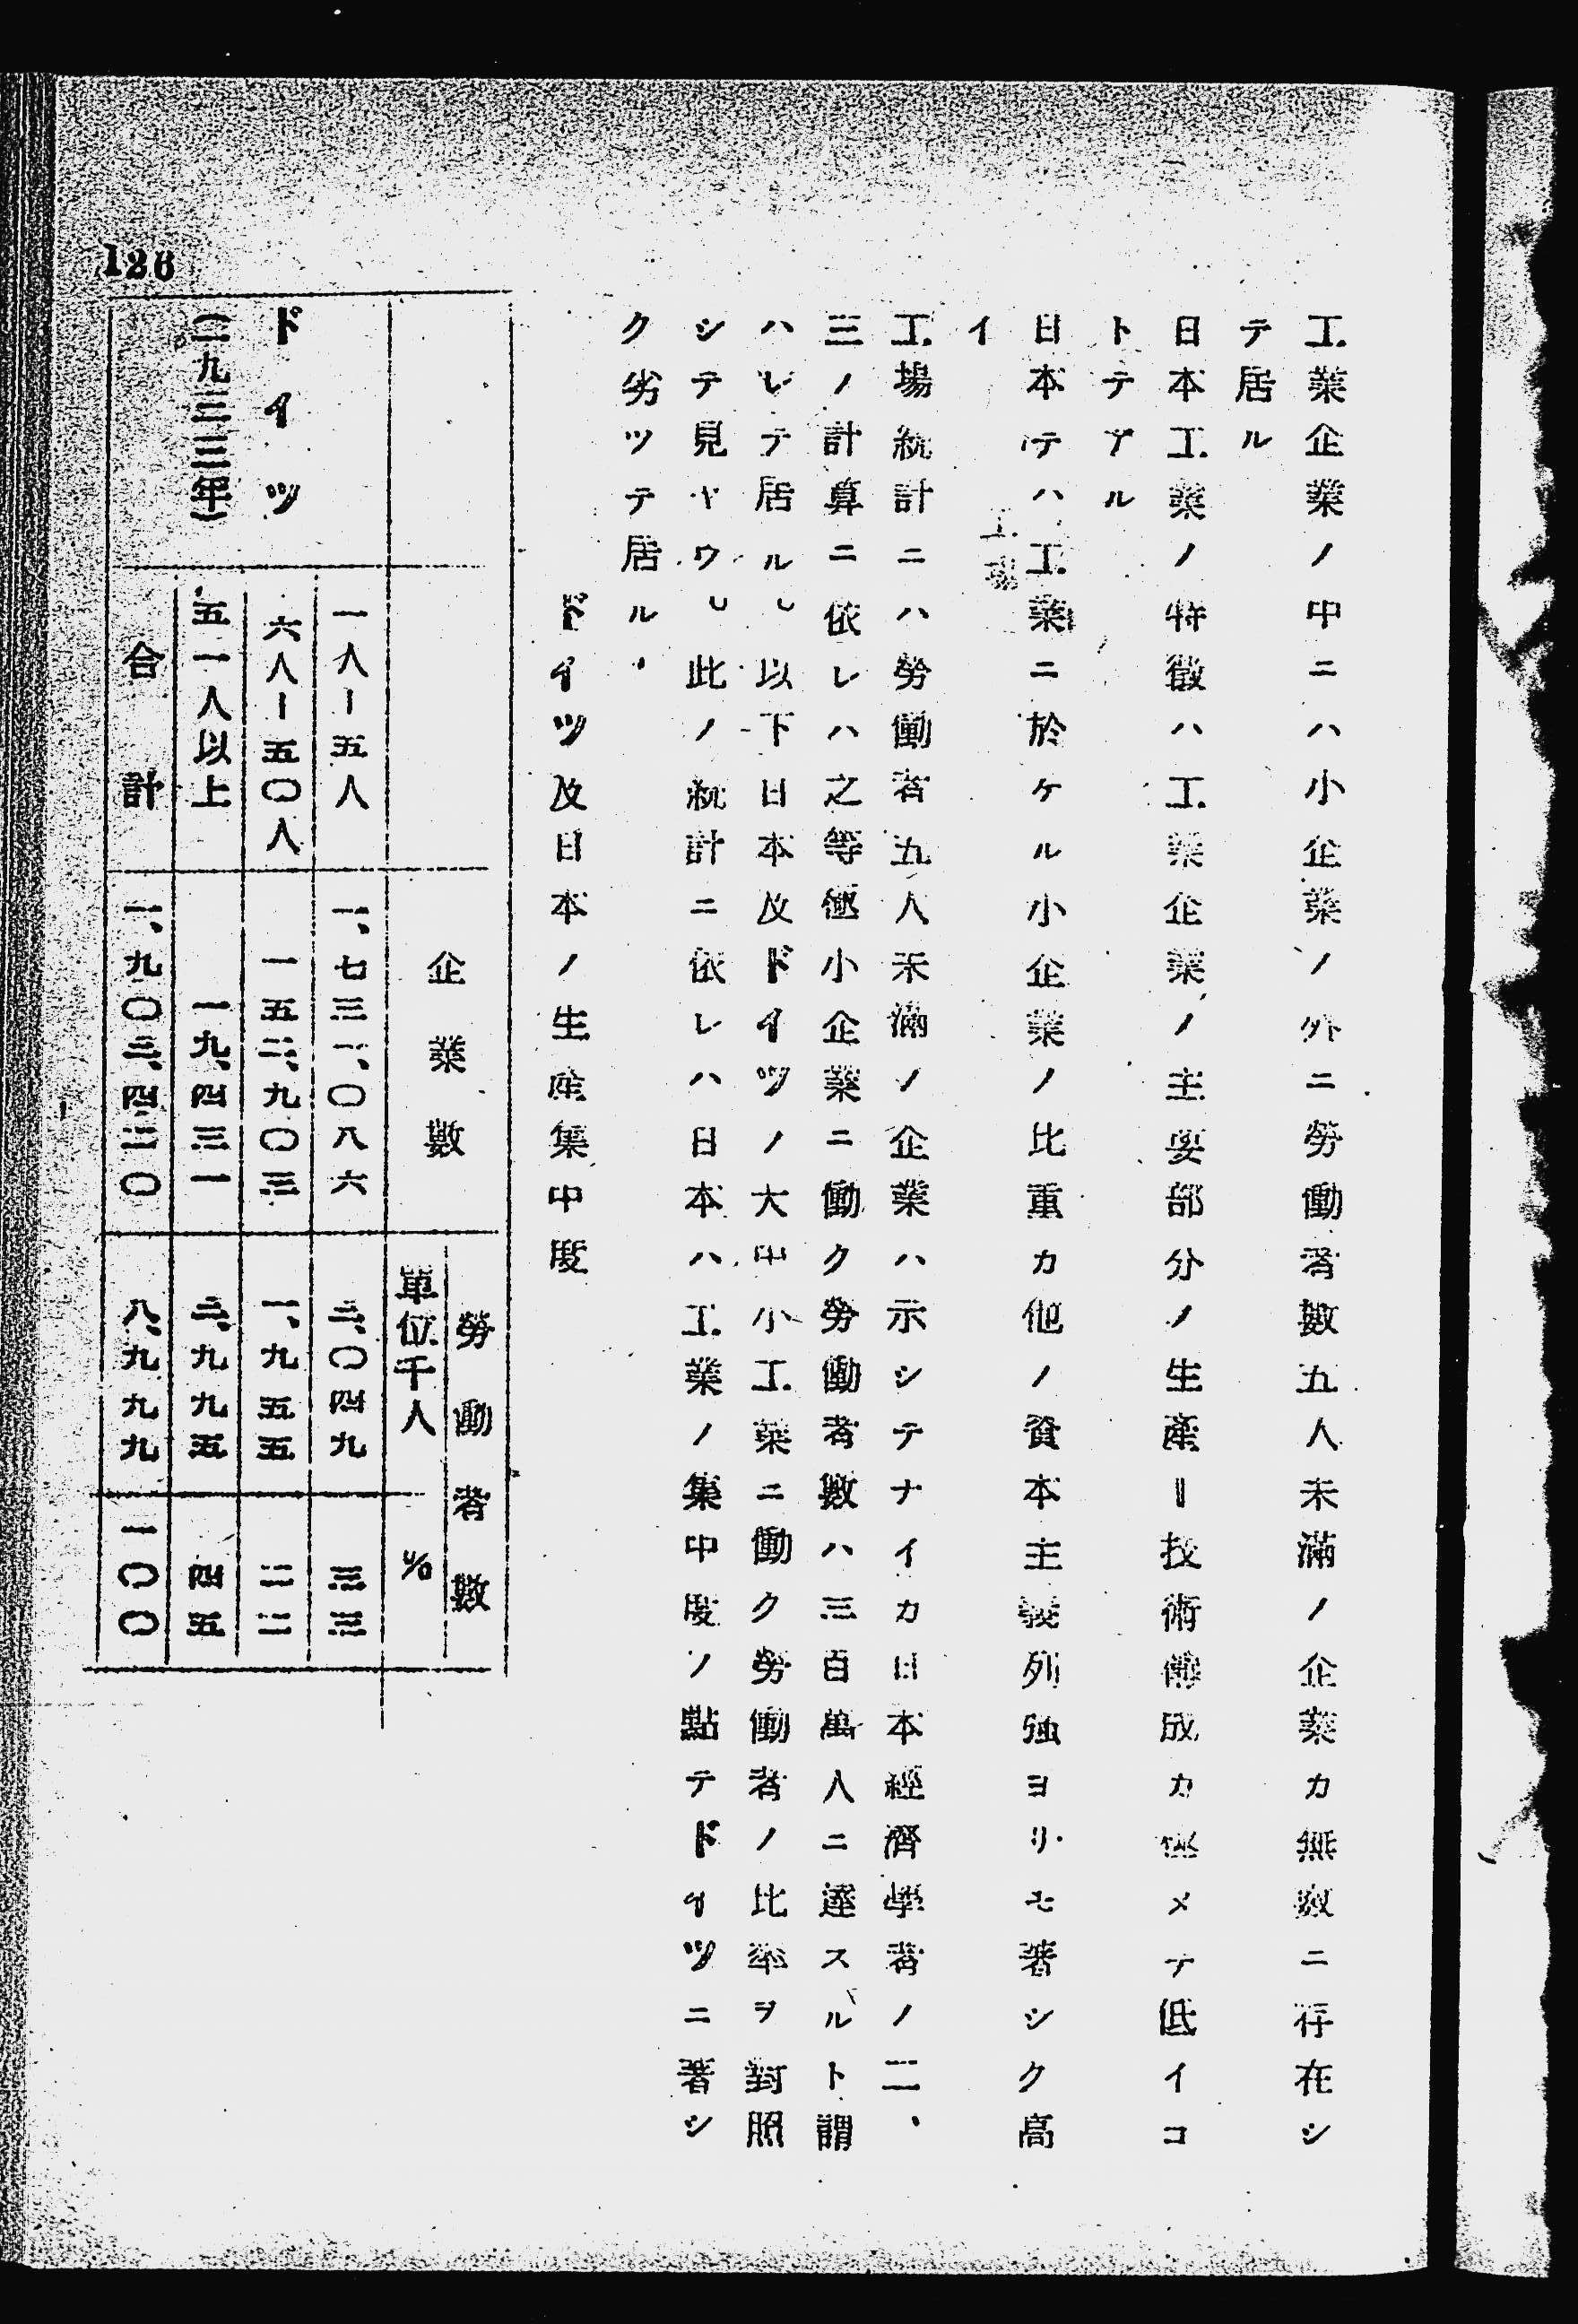 工業企業ノ中ニハ小企業ノ外ニ勞働者數五人未滿ノ企業カ無數ニ存在シ
テ居ル
日本工業ノ特徴ハ工業企業ノ主要部分ノ生産‖技術構成カ極メテ低イコ
トテアル
日本テハ工業ニ於ケル小企業ノ比重カ他ノ資本主義列強ヨリモ著シク高
イ
工場
工場統計ニハ勞働者五人未滿ノ企業ハ示シテナイカ日本經濟學者ノ二、
三ノ計算ニ依レハ之等極小企業ニ働ク勞働者數ハ三百萬人ニ達スルト謂
ハレテ居ル。以下日本及ドイツノ大中小工業ニ働ク勞働者ノ比率ヲ對照
シテ見ヤウ。此ノ統計ニ依レハ日本ハ工業ノ集中度ノ點テドイツニ著シ
ク劣ツテ居ル、
ドイツ及日本ノ生産集中度
企業數
勞働者數
單位千人
%
ドイツ
(一九二三年)
一人ー五人
一、七三一、〇八六
三、〇四九
三三
六人ー五〇人
一五二、九〇三
一、九五五
二二
五一人以上
一九、四三一
三、九九五
四五
合計
一、九〇三、四二〇
八、九九九
一〇〇
126